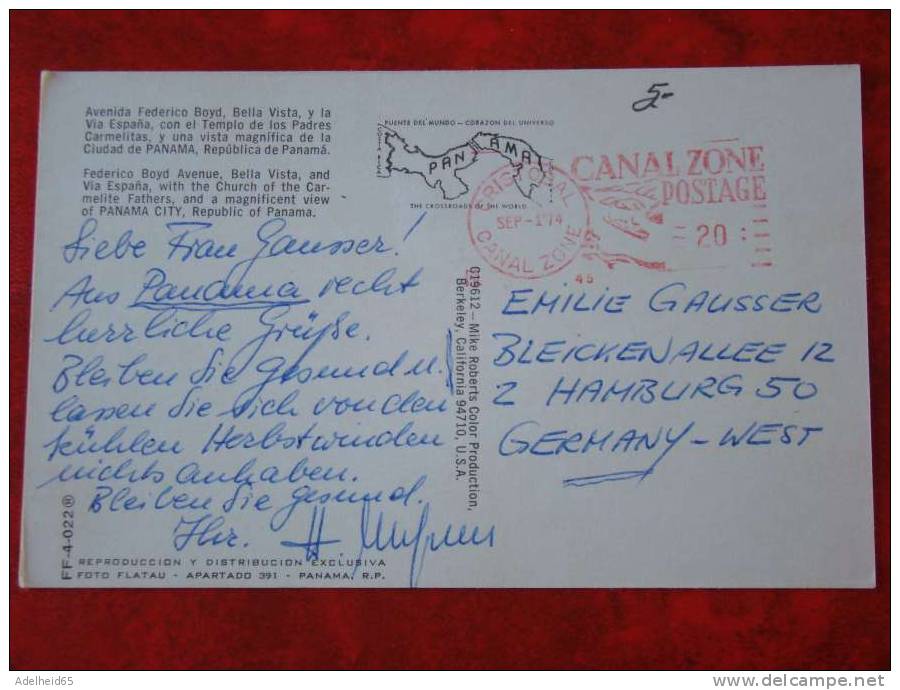 5-
Avenida Federico Boyd, Bella Vista, y la
Via España, con el Templo de los Padres
Carmelitas, y una vista magnífica de la
Ciudad de PANAMA, República de Panamá.
Federico Boyd Avenue, Bella Vista, and
Via España, with the Church of the Car-
melite Fathers, and a magnificent view
of PANAMA CITY, Republic of Panama.
PUENTE DEL MUNDO — CORAZON DEL UNIVERSO
PANAMA
THE CROSSROADS OF THE WORLD
CRISTOBAL
SEP-1'74
CANAL ZONE
45
CANAL ZONE
POSTAGE
20
Liebe Frau Gausser!
Aus Panama recht
herrliche Grüße.
Bleiben Sie gesund u.
lassen Sie sich von den
kühlen Herbstwinden
nichts anhaben.
Bleiben Sie gesund.
Ihr. H.
C19612—Mike Roberts Color Production,
Berkeley, California 94710, U.S.A.
EMILIE GAUSSER
BLEICKENALLEE 12
2 HAMBURG 50
GERMANY-WEST
FF-4-022®
REPRODUCCION Y DISTRIBUCION EXCLUSIVA
FOTO FLATAU - APARTADO 391 - PANAMA, R.P.
Adelheid65
www.delcampe.net